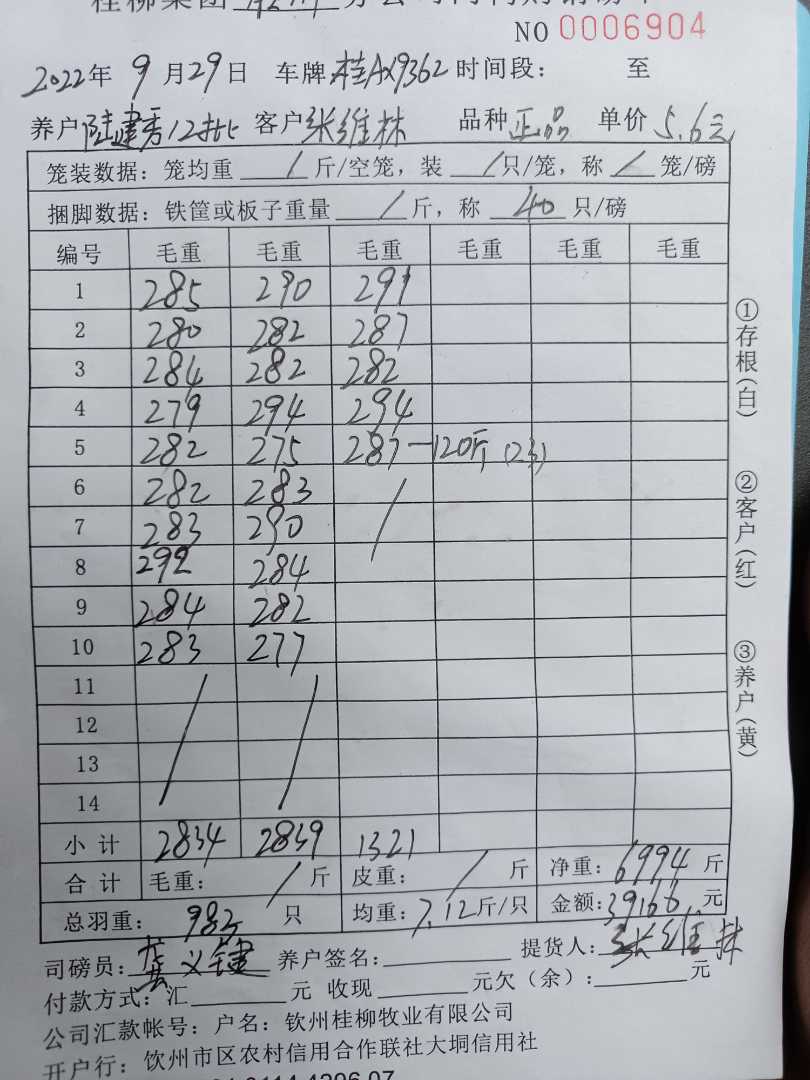 NO 0006904
2022年 9月29日 车牌 桂AX9362 时间段： 至
养户 陆建秀12批 客户 张维林 品种 正品 单价 5.6元
笼装数据：笼均重 / 斤/空笼，装 / 只/笼，称 / 笼/磅
捆脚数据：铁筐或板子重量 / 斤，称 40 只/磅
编号 毛重 毛重 毛重 毛重 毛重 毛重
1 285 290 291
2 280 282 287
3 284 282 282
4 279 294 294
5 282 275 287-120斤
6 282 283 /
7 283 290
8 292 284
9 284 282
10 283 277
11 / /
12
13
14
小计 2834 2839 1321
合计 毛重： / 斤 皮重： / 斤 净重：6994斤
总羽重： 983 只 均重：7.12斤/只 金额：39166元
司磅员： 养户签名： 提货人：张维林
付款方式：汇 元 收现 元欠（余）： 元
公司汇款帐号：户名：钦州桂柳牧业有限公司
开户行：饮州市区农村信用合作联社大垌信用社
①存根(白)
②客户(红)
③养户(黄)